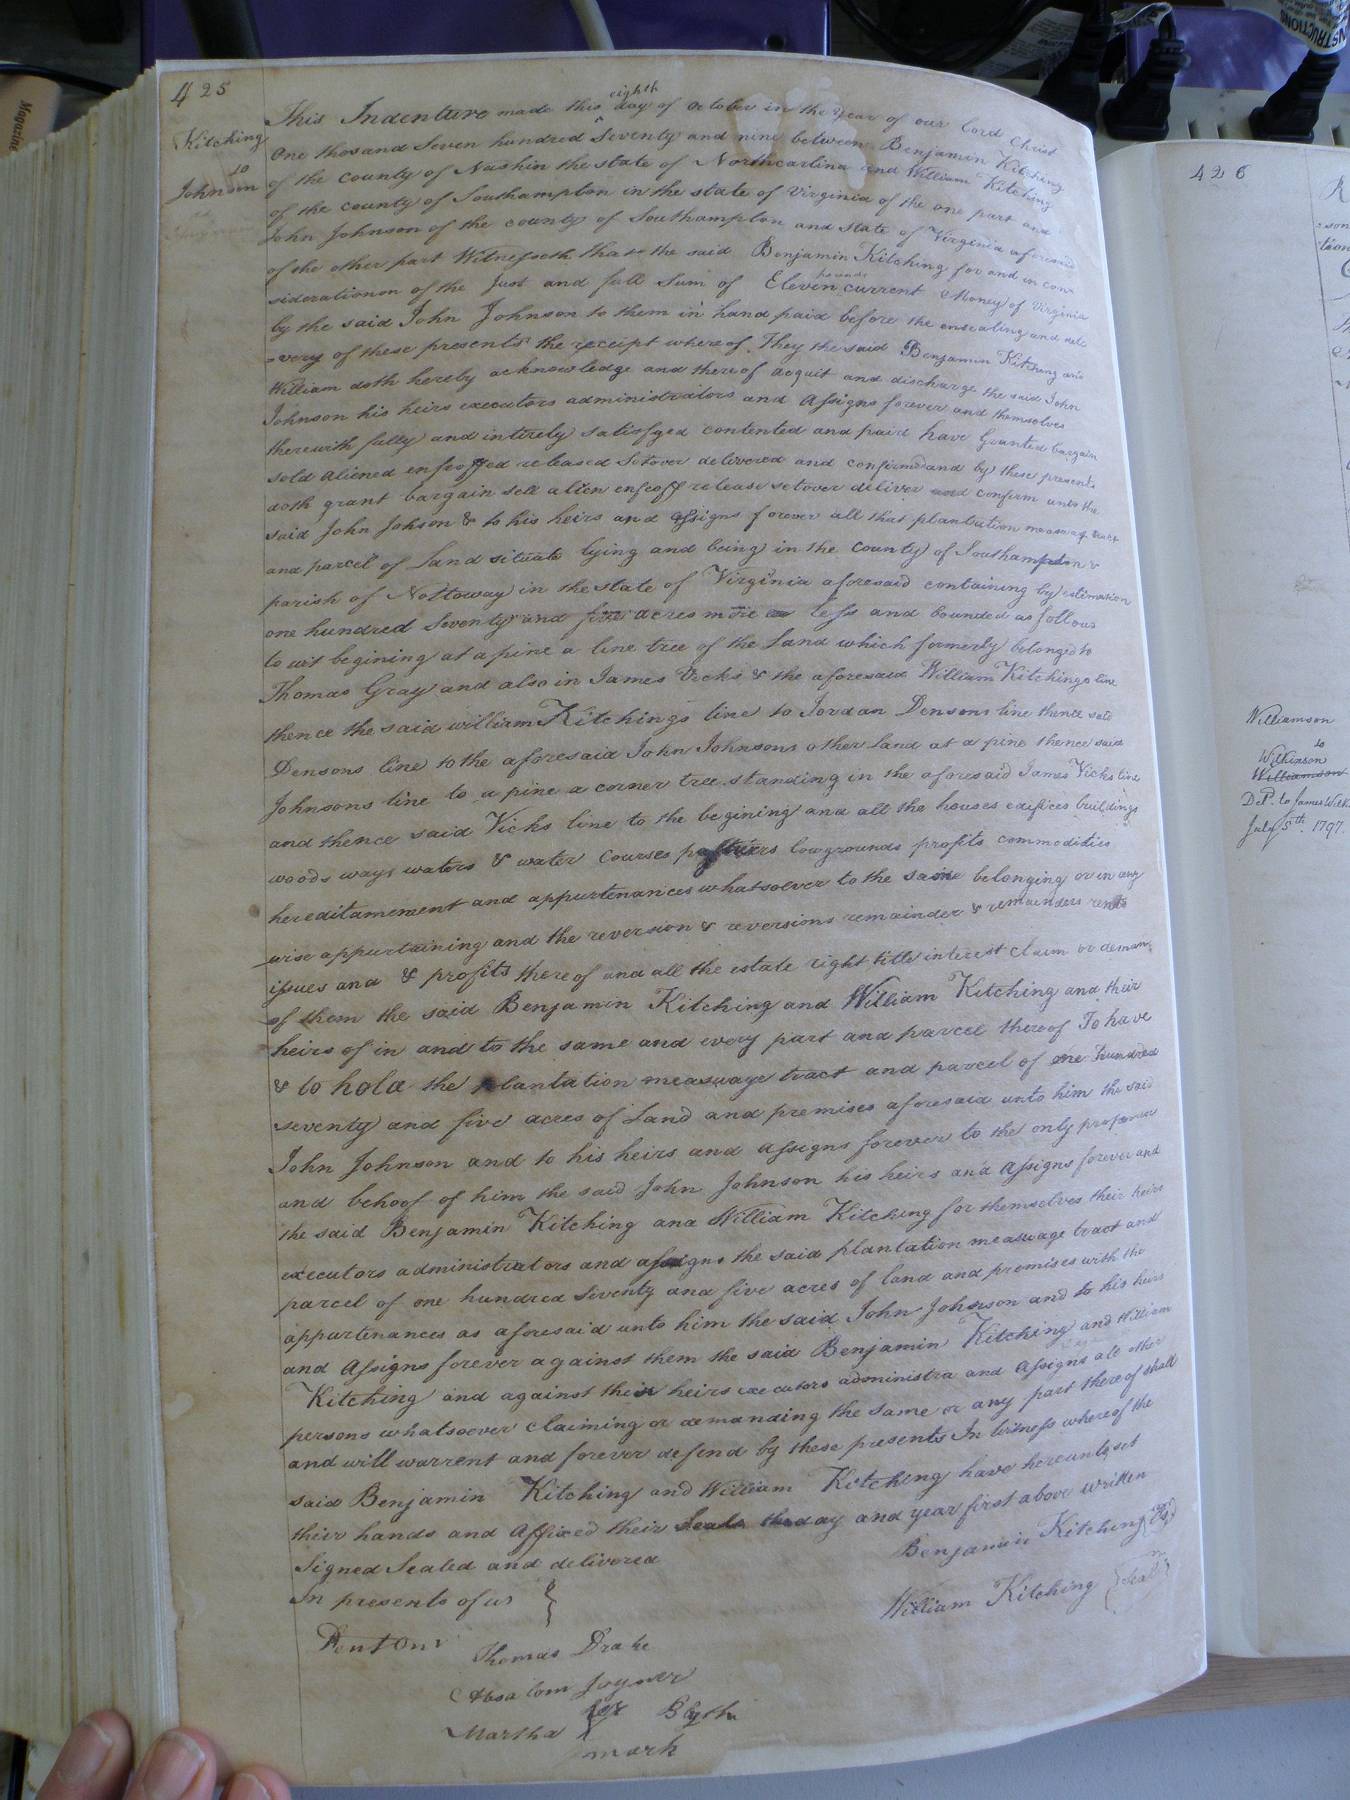 425
Kitching
to
Johnson
This Indenture made this eighth day of October in the Year of our Lord Christ
One thosand Seven hundred Seventy and nine between Benjamin Kitching
of the county of Nash in the state of Northcarlina and William Kitching
of the county of Southampton in the state of Virginia of the one part and
John Johnson of the county of Southampton and State of Virginia aforesaid
of the other part Witnesseth that the said Benjamin Kitching for and in con
siderationon of the Just and full Sum of Eleven pounds current Money of Virginia
by the said John Johnson to them in hand paid before the ensealing and deli
=very of these presents the receipt whereof They the said Benjamin Kitching and
William doth hereby acknowledge and thereof acquit and discharge the said John
Johnson his heirs executors administrators and Assigns forever and themselves
therewith fully and intirely satisfyed contented and paid have Granted bargain
sold aliened enfeoffed released Setover delivered and confirmed and by these presents
doth grant bargain sell alien enfeoff release setover deliver and confirm unto the
said John Johson & to his heirs and assigns forever all that plantation measuage tract
and parcel of Land situate lying and being in the County of Southampton &
parish of Nottoway in the State of Virginia aforesaid containing by estimation
one hundred Seventy and five acres more or less and bounded as follows
to wit begining at a pine a line tree of the Land which formerly belonged to
Thomas Gray and also in James Vicks & the aforesaid William Kitchings line
thence the said william Kitchings line to Jordan Densons line thence said
Densons line to the aforesaid John Johnsons other Land at a pine thence said
Johnsons line to a pine a corner tree standing in the aforesaid James Vicks line
and thence said Vicks line to the begining and all the houses edifices buildings
woods ways waters & water courses pastures lowgrounds profits commodities
hereditamement and appurtenances whatsoever to the same belonging or in any
wise appurtaining and the reversion & reversions remainder & remainders rents
issues and & profits thereof and all the estate right title interest claim or demand
of them the said Benjamin Kitching and William Kitching and their
heirs of in and to the same and every part and parcel thereof To have
& to hold the plantation measuage tract and parcel of one hundred
seventy and five acres of Land and premises aforesaid unto him the said
John Johnson and to his heirs and Assigns forever to the only proper use
and behoof of him the said John Johnson his heirs and Assigns forever and
the said Benjamin Kitching and William Kitching for themselves their heirs
executors administrators and assigns the said plantation measuage tract and
parcel of one hundred Seventy and five acres of land and premises with the
appurtenances as aforesaid unto him the said John Johnson and to his heirs
and Assigns forever against them the said Benjamin Kitching and William
Kitching and against their heirs executors administra and Assigns all other
persons whatsoever claiming or demanding the same or any part thereof shall
and will warrent and forever defend by these presents In Witness whereof the
said Benjamin Kitching and William Kitching have hereunto set
their hands and affixed their Seals the day and year first above written
Signed Sealed and delivered
In presents of us
Benjamin Kitching
William Kitching Seal
Thomas Drake
Absalom Joyner
Martha her Blyth
mark
426
Williamson
to
Wilkinson
Williamson
Deld. to James Wilk
July 5th. 1797.